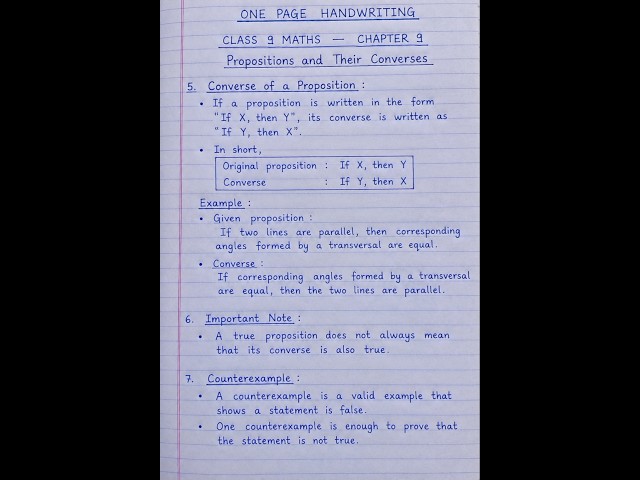 ONE PAGE HANDWRITING
CLASS 9 MATHS — CHAPTER 9
Propositions and Their Converses
5. Converse of a Proposition :
• If a proposition is written in the form
"If X, then Y", its converse is written as
"If Y, then X".
• In short,
Original proposition : If X, then Y
Converse : If Y, then X
Example :
• Given proposition :
If two lines are parallel, then corresponding
angles formed by a transversal are equal.
• Converse :
If corresponding angles formed by a transversal
are equal, then the two lines are parallel.
6. Important Note :
• A true proposition does not always mean
that its converse is also true.
7. Counterexample :
• A counterexample is a valid example that
shows a statement is false.
• One counterexample is enough to prove that
the statement is not true.